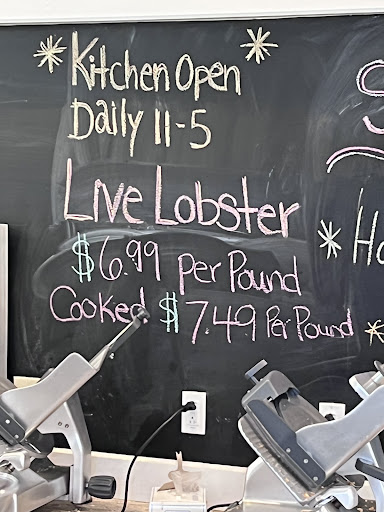 *Kitchen Open*
Daily 11-5
Live Lobster
$6.99 per Pound
Cooked $7.49 Per Pound